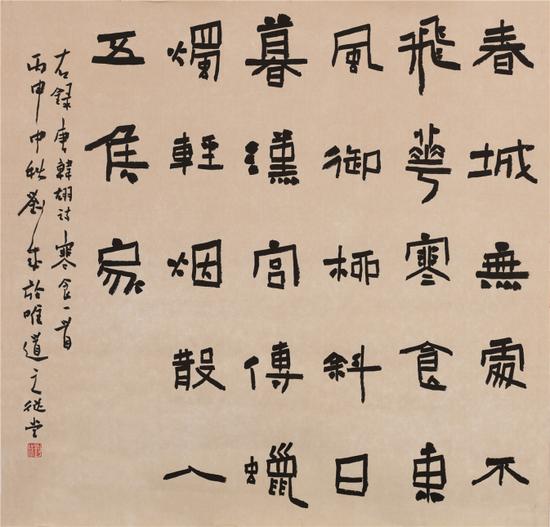 春城無處不
飛華寒食東
風御柳斜日
暮漢宮傳蠟
燭輕烟散入
五侯家
右錄唐韓翃詩寒食一首
丙申中秋劉於唯道之從堂